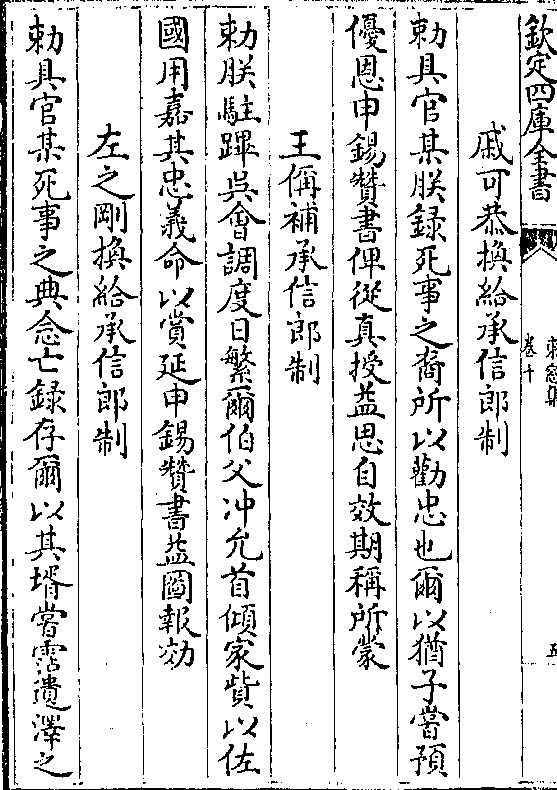 欽定四庫全書
卷十
五
戚可恭換給承信郎制
勅具官某朕録死事之裔所以勸忠也爾以猶子嘗預
優恩申錫贊書俾從真授益思自效期稱所蒙
王偁補承信郎制
勅朕駐蹕吳會調度日繁爾伯父冲允首傾家貲以佐
國用嘉其忠義命以賞延申錫贊書益圖報効
左之剛換給承信郎制
勅具官某死事之典念亡録存爾以其壻嘗霑遺澤之